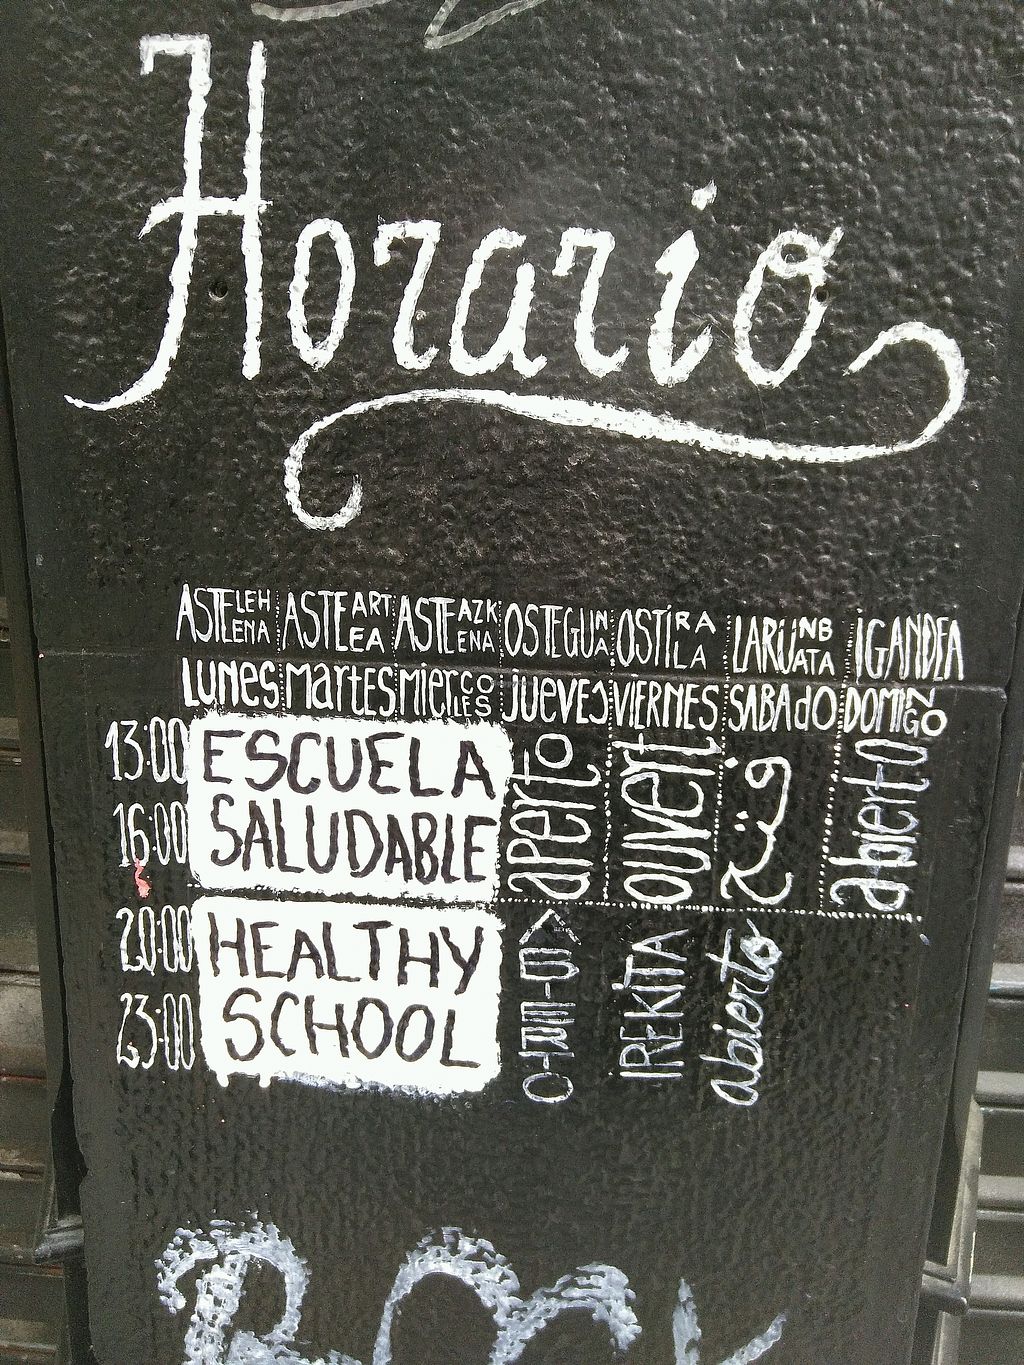 Horario
ASTELEHENA ASTEARTEA ASTEAZKENA OSTEGUNA OSTIRALA LARUNBATA IGANDEA
LUNES MARTES MIERCOLES JUEVES VIERNES SABADO DOMINGO
13:00
16:00
ESCUELA
SALUDABLE
aperto
ouvert
abierto
20:00
23:00
HEALTHY
SCHOOL
ABIERTO
IREKITA
abierto